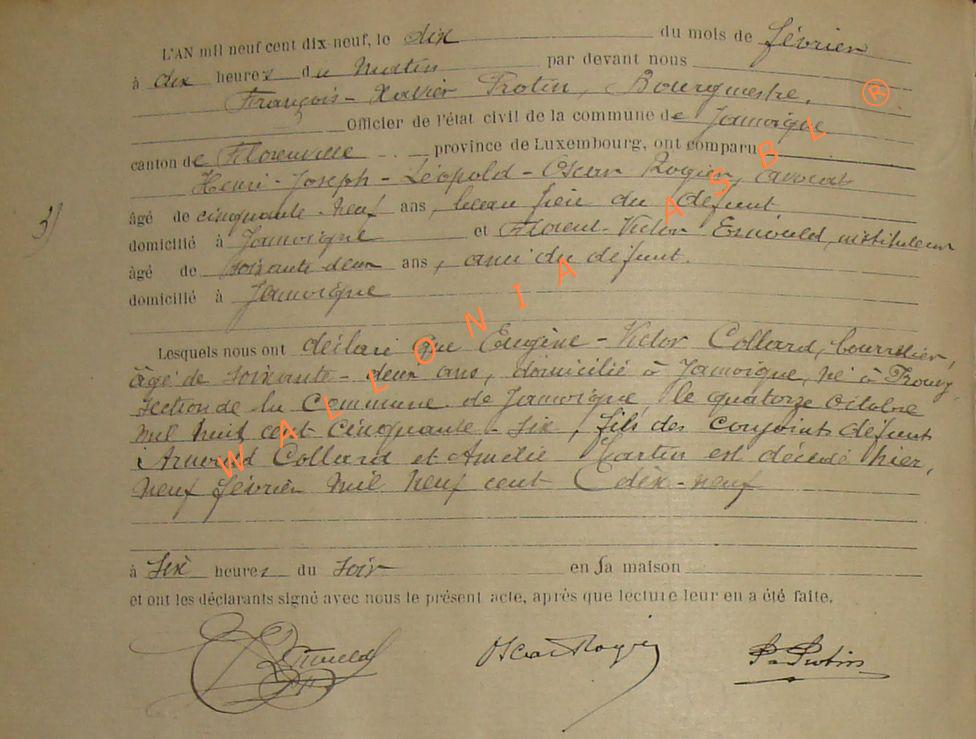 L'AN mil neuf cent dix-neuf, le dix du mois de février
à dix heures du Matin par devant nous
François-Xavier Protin, Bourgmestre,
Officier de l'état civil de la commune de Jamoigne
canton de Florenville province de Luxembourg, ont comparu
Henri-Joseph-Léopold-Oscar Rogier, avocat
âgé de cinquante-neuf ans, beau frère du défunt
domicilié à Jamoigne et Florent-Victor instituteur
3)
âgé de soixante deux ans, ami du défunt.
domicilié à Jamoigne
Lesquels nous ont déclaré que Eugène-Victor Collard, bourrelier,
âgé de soixante-deux ans, domicilié à Jamoigne, né à Prouvy,
section de la Commune de Jamoigne le quatorze octobre
mil huit cent cinquante-six, fils des conjoints défunts
Arnould Collard et Amélie est décédé hier,
neuf février mil neuf cent dix-neuf
à six heures du soir en sa maison
et ont les déclarants signé avec nous le présent acte, après que lecture leur en a été faite.
Oscar Rogier Protin
WALLONIA ASBL ®